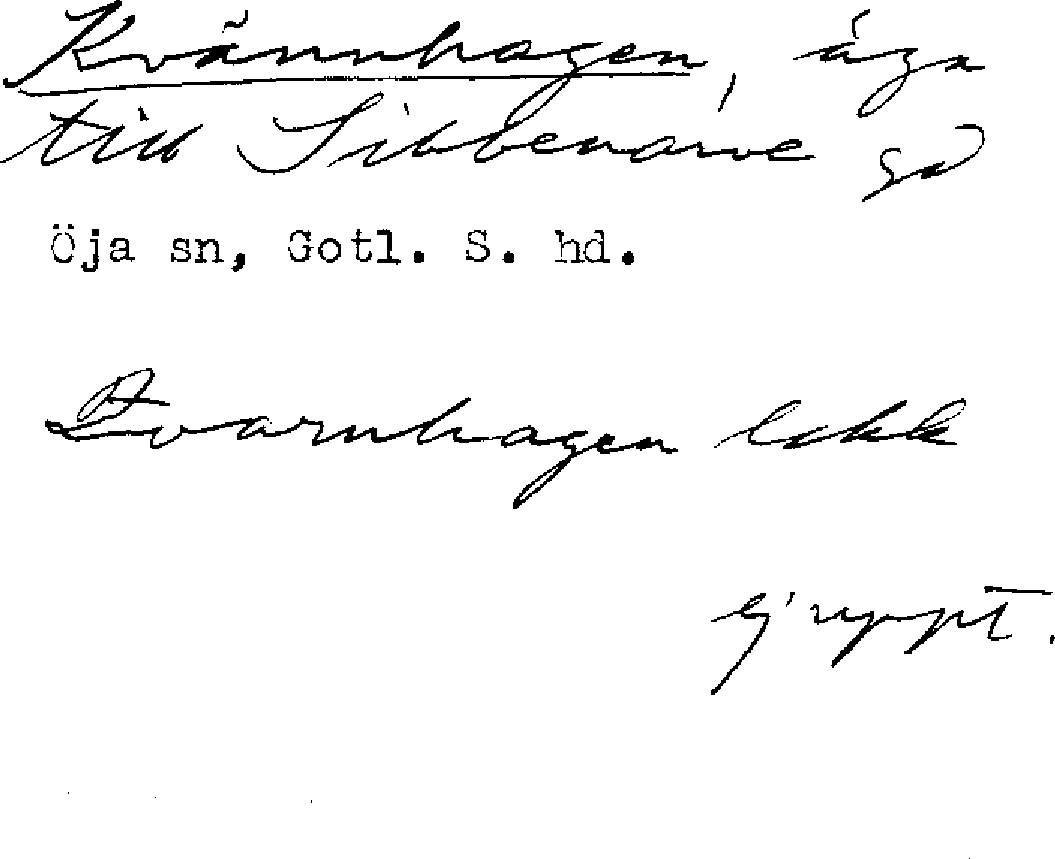 Kvännhagen, äga
till Sibbenarve gd
Öja sn, Gotl. S. hd.
Qvarnhagen
ej uppt.